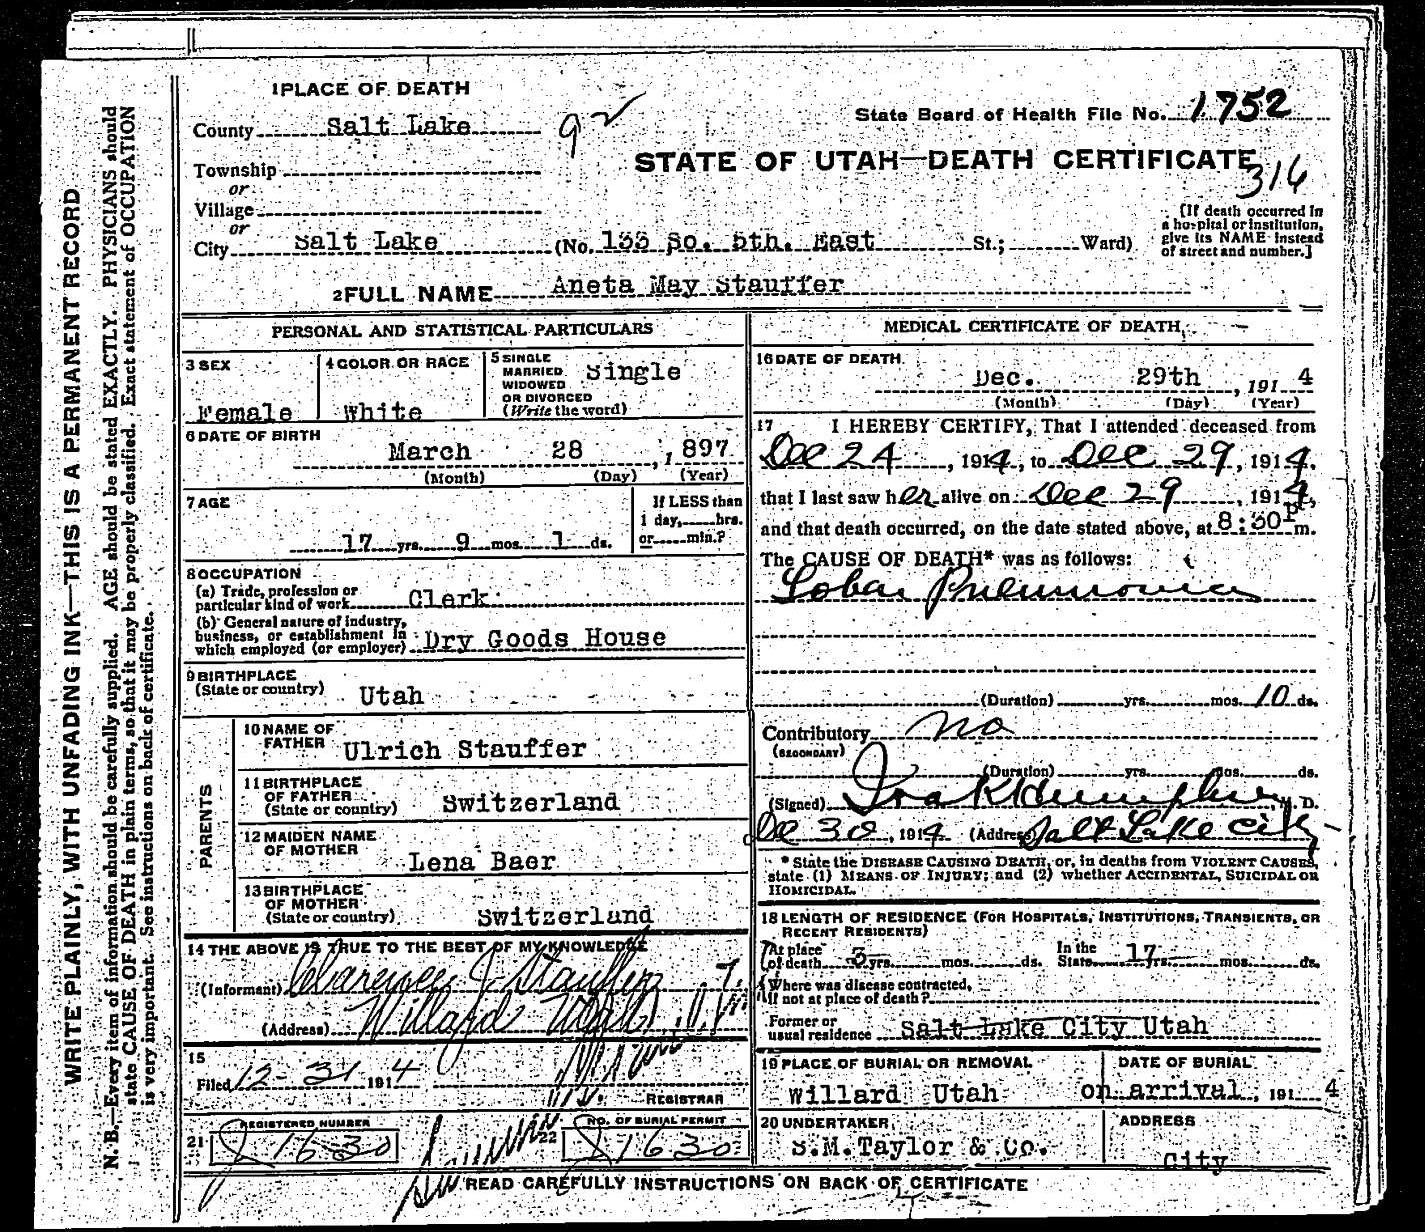 1 PLACE OF DEATH
County Salt Lake
State Board of Health File No. 1752
STATE OF UTAH—DEATH CERTIFICATE
316
Township
or
Village
or
City Salt Lake (No. 135 So. 5th. East St.; Ward)
[If death occurred in
a hospital or institution,
give its NAME instead
of street and number.]
2 FULL NAME Aneta May Stauffer
PERSONAL AND STATISTICAL PARTICULARS
3 SEX
Female
4 COLOR OR RACE
White
5 SINGLE
MARRIED
WIDOWED
OR DIVORCED
(Write the word)
Single
6 DATE OF BIRTH
March 28, 1897
(Month) (Day) (Year)
7 AGE
17 yrs. 9 mos. 1 ds.
If LESS than
1 day, hrs.
or min.?
8 OCCUPATION
(a) Trade, profession or
particular kind of work Clerk
(b) General nature of industry,
business, or establishment in
which employed (or employer) Dry Goods House
9 BIRTHPLACE
(State or country) Utah
PARENTS
10 NAME OF
FATHER Ulrich Stauffer
11 BIRTHPLACE
OF FATHER
(State or country) Switzerland
12 MAIDEN NAME
OF MOTHER
Lena Baer
13 BIRTHPLACE
OF MOTHER
(State or country) Switzerland
14 THE ABOVE IS TRUE TO THE BEST OF MY KNOWLEDGE
(Informant) Clarence J Stauffer
(Address) Willard
15
Filed 12-31 1914
REGISTRAR
21 REGISTERED NUMBER
J 1630
22 NO. OF BURIAL PERMIT
J 1630
MEDICAL CERTIFICATE OF DEATH
16 DATE OF DEATH
Dec. 29th, 1914
(Month) (Day) (Year)
17 I HEREBY CERTIFY, That I attended deceased from
Dec 24, 1914, to Dec 29, 1914,
that I last saw her alive on Dec 29, 1914,
and that death occurred, on the date stated above, at 8:30 P m.
The CAUSE OF DEATH* was as follows:
Lobar Pneumonia
(Duration) yrs. mos. 10 ds.
Contributory no
(SECONDARY)
(Duration) yrs. mos. ds.
(Signed) Ira K Humphrey, M.D.
Dec 30, 1914 (Address) Salt Lake City
* State the DISEASE CAUSING DEATH, or, in deaths from VIOLENT CAUSES,
state (1) MEANS OF INJURY; and (2) whether ACCIDENTAL, SUICIDAL OR
HOMICIDAL.
18 LENGTH OF RESIDENCE (FOR HOSPITALS, INSTITUTIONS, TRANSIENTS, OR
RECENT RESIDENTS)
At place
of death 3 yrs. mos. ds. In the
State 17 yrs. mos. ds.
Where was disease contracted,
if not at place of death?
Former or
usual residence Salt Lake City Utah
19 PLACE OF BURIAL OR REMOVAL
Willard Utah
DATE OF BURIAL
on arrival, 1914
20 UNDERTAKER
S.M.Taylor & Co.
ADDRESS
City
READ CAREFULLY INSTRUCTIONS ON BACK OF CERTIFICATE
WRITE PLAINLY, WITH UNFADING INK—THIS IS A PERMANENT RECORD
N. B.—Every item of information should be carefully supplied. AGE should be stated EXACTLY. PHYSICIANS should
state CAUSE OF DEATH in plain terms, so that it may be properly classified. Exact statement of OCCUPATION
is very important. See instructions on back of certificate.